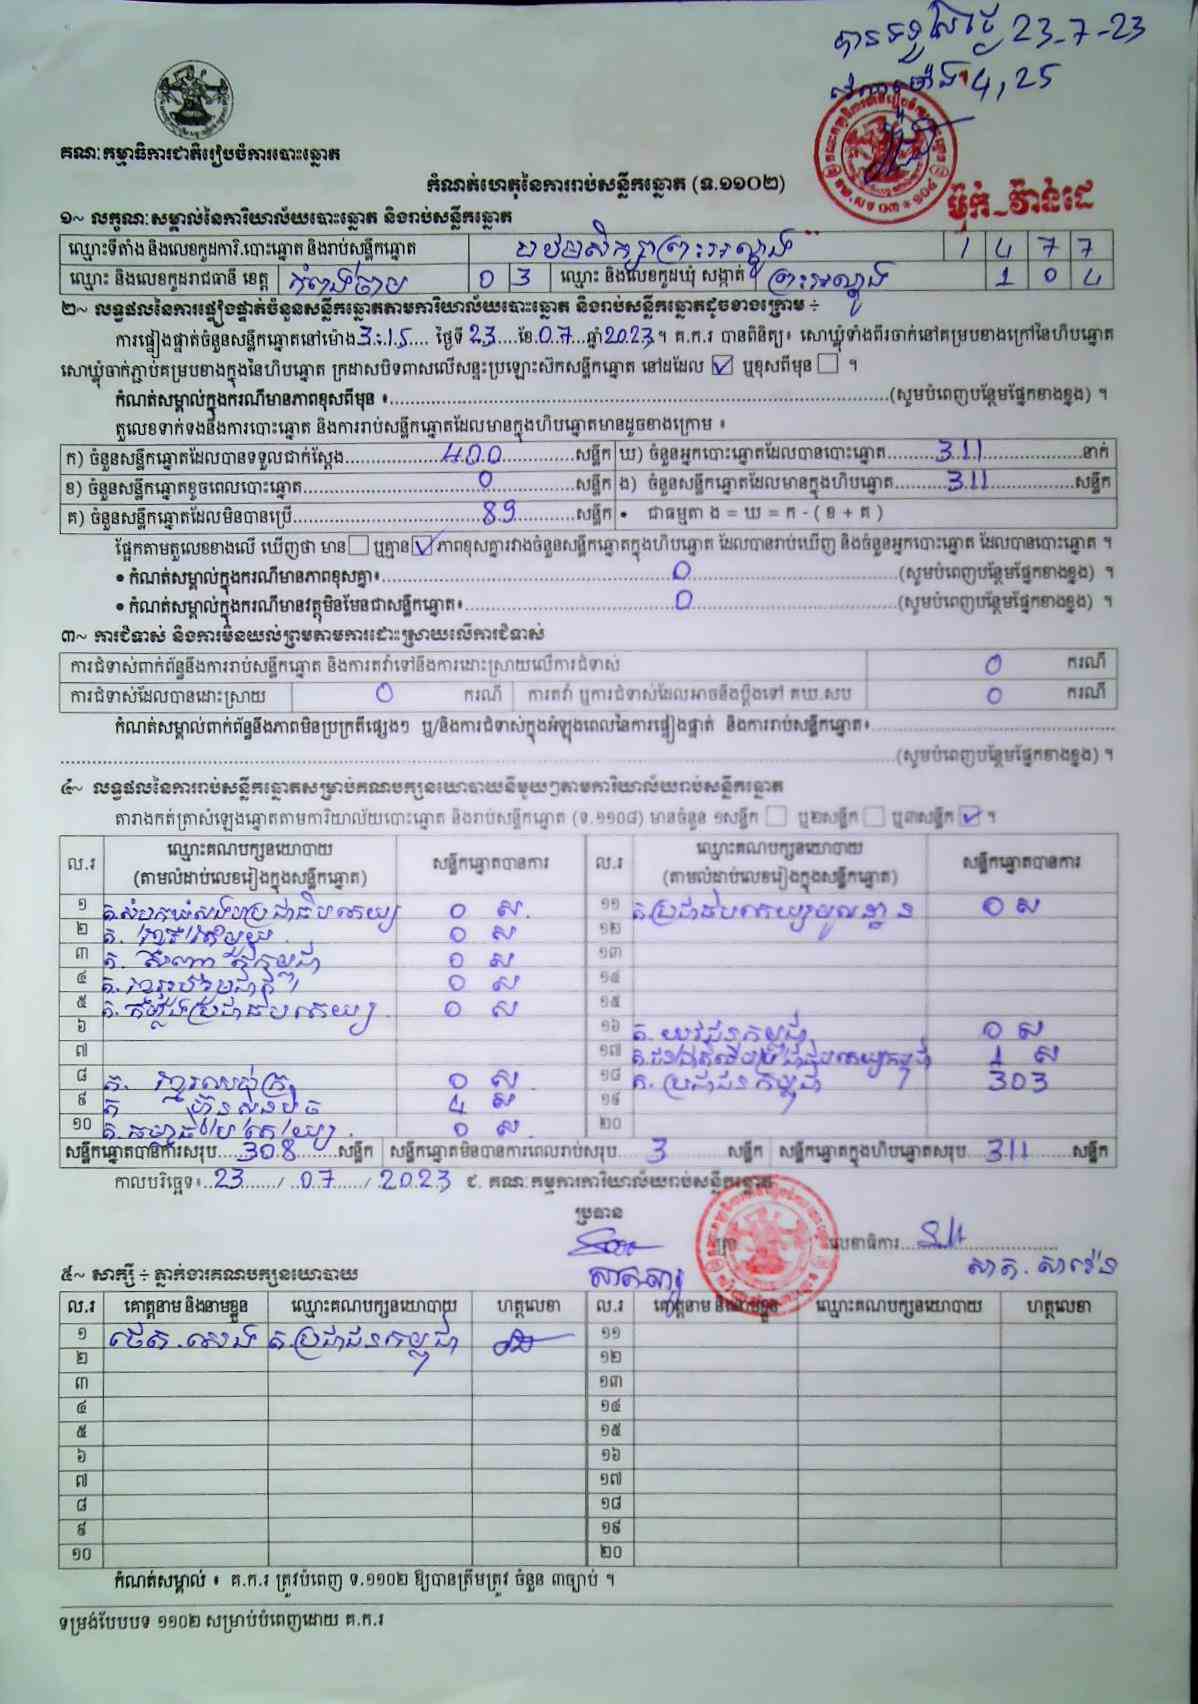 បានទទួលថ្ងៃ 23-7-23
ម៉ោង 4,25
គណៈកម្មាធិការជាតិរៀបចំការបោះឆ្នោត
កំណត់ហេតុនៃការរាប់សន្លឹកឆ្នោត (ទ.១១០២)
ម៉ុក-វ៉ាន់ដេ
១~ លក្ខណៈសម្គាល់នៃការិយាល័យបោះឆ្នោត និងរាប់សន្លឹកឆ្នោត
ឈ្មោះទីតាំង និងលេខកូដការិ.បោះឆ្នោត និងរាប់សន្លឹកឆ្នោត 1 4 7 7
ឈ្មោះ និងលេខកូដរាជធានី ខេត្ត កំពង់ចាម 0 3 ឈ្មោះ និងលេខកូដឃុំ សង្កាត់ 1 0 4
២~ លទ្ធផលនៃការផ្ទៀងផ្ទាត់ចំនួនសន្លឹកឆ្នោតតាមការិយាល័យបោះឆ្នោត និងរាប់សន្លឹកឆ្នោតដូចខាងក្រោម ÷
ការផ្ទៀងផ្ទាត់ចំនួនសន្លឹកឆ្នោតនៅម៉ោង 3:15 ថ្ងៃទី 23 ខែ 07 ឆ្នាំ 2023 ។ គ.ក.រ បានពិនិត្យ៖ សោឃ្លុំទាំងពីរចាក់នៅគម្របខាងក្រៅនៃហិបឆ្នោត
សោឃ្លុំចាក់ភ្ជាប់គម្របខាងក្នុងនៃហិបឆ្នោត ក្រដាសបិទពាសលើសន្ទះប្រឡោះស៊កសន្លឹកឆ្នោត នៅដដែល ☑ ឬខុសពីមុន ☐ ។
កំណត់សម្គាល់ក្នុងករណីមានភាពខុសពីមុន ៖ (សូមបំពេញបន្ថែមផ្នែកខាងខ្នង) ។
តួលេខទាក់ទងនឹងការបោះឆ្នោត និងការរាប់សន្លឹកឆ្នោតដែលមានក្នុងហិបឆ្នោតមានដូចខាងក្រោម ៖
ក) ចំនួនសន្លឹកឆ្នោតដែលបានទទួលជាក់ស្តែង 400 សន្លឹក ឃ) ចំនួនអ្នកបោះឆ្នោតដែលបានបោះឆ្នោត 311 នាក់
ខ) ចំនួនសន្លឹកឆ្នោតខូចពេលបោះឆ្នោត 0 សន្លឹក ង) ចំនួនសន្លឹកឆ្នោតដែលមានក្នុងហិបឆ្នោត 311 សន្លឹក
គ) ចំនួនសន្លឹកឆ្នោតដែលមិនបានប្រើ 89 សន្លឹក • ជាធម្មតា ង = ឃ = ក - ( ខ + គ )
ផ្អែកតាមតួលេខខាងលើ ឃើញថា មាន ☐ ឬគ្មាន ☑ ភាពខុសគ្នារវាងចំនួនសន្លឹកឆ្នោតក្នុងហិបឆ្នោត ដែលបានរាប់ឃើញ និងចំនួនអ្នកបោះឆ្នោត ដែលបានបោះឆ្នោត ។
• កំណត់សម្គាល់ក្នុងករណីមានភាពខុសគ្នា៖ 0 (សូមបំពេញបន្ថែមផ្នែកខាងខ្នង) ។
• កំណត់សម្គាល់ក្នុងករណីមានវត្ថុមិនមែនជាសន្លឹកឆ្នោត៖ 0 (សូមបំពេញបន្ថែមផ្នែកខាងខ្នង) ។
៣~ ការជំទាស់ និងការមិនយល់ព្រមតាមការដោះស្រាយលើការជំទាស់
ការជំទាស់ពាក់ព័ន្ធនឹងការរាប់សន្លឹកឆ្នោត និងការតវ៉ាទៅនឹងការដោះស្រាយលើការជំទាស់ 0 ករណី
ការជំទាស់ដែលបានដោះស្រាយ 0 ករណី ការតវ៉ា ឬការជំទាស់ដែលអាចនឹងប្តឹងទៅ គឃ.សប 0 ករណី
កំណត់សម្គាល់ពាក់ព័ន្ធនឹងភាពមិនប្រក្រតីផ្សេងៗ ឬ/និងការជំទាស់ក្នុងអំឡុងពេលនៃការផ្ទៀងផ្ទាត់ និងការរាប់សន្លឹកឆ្នោត៖
(សូមបំពេញបន្ថែមផ្នែកខាងខ្នង) ។
៤~ លទ្ធផលនៃការរាប់សន្លឹកឆ្នោតសម្រាប់គណបក្សនយោបាយនីមួយៗតាមការិយាល័យរាប់សន្លឹកឆ្នោត
តារាងកត់ត្រាសំឡេងឆ្នោតតាមការិយាល័យបោះឆ្នោត និងរាប់សន្លឹកឆ្នោត (ទ.១១០៨) មានចំនួន ១សន្លឹក ☐ ឬ២សន្លឹក ☐ ឬ៣សន្លឹក ☑ ។
ល.រ ឈ្មោះគណបក្សនយោបាយ (តាមលំដាប់លេខរៀងក្នុងសន្លឹកឆ្នោត) សន្លឹកឆ្នោតបានការ ល.រ ឈ្មោះគណបក្សនយោបាយ (តាមលំដាប់លេខរៀងក្នុងសន្លឹកឆ្នោត) សន្លឹកឆ្នោតបានការ
១ គ.សំបុកឃ្មុំសង្គមប្រជាធិបតេយ្យ 0 ស ១១ គ.ប្រជាធិបតេយ្យមូលដ្ឋាន 0 ស
២ គ. 0 ស ១២
៣ គ. 0 ស ១៣
៤ គ. 0 ស ១៤
៥ គ.កម្លាំងប្រជាធិបតេយ្យ 0 ស ១៥
៦ ១៦ គ.យុវជនកម្ពុជា 0 ស
៧ ១៧ គ. 1 ស
៨ គ. 0 ស ១៨ គ.ប្រជាជនកម្ពុជា 303
៩ គ ហ៊្វុនស៊ិនប៉ិច 4 ស ១៩
១០ គ.ធម្មាធិបតេយ្យ 0 ស ២០
សន្លឹកឆ្នោតបានការសរុប 308 សន្លឹក សន្លឹកឆ្នោតមិនបានការពេលរាប់សរុប 3 សន្លឹក សន្លឹកឆ្នោតក្នុងហិបឆ្នោតសរុប 311 សន្លឹក
កាលបរិច្ឆេទ៖ 23 / 07 / 2023 ជ. គណៈកម្មការការិយាល័យរាប់សន្លឹកឆ្នោត
ប្រធាន
លេខាធិការ
៥~ សាក្សី ÷ ភ្នាក់ងារគណបក្សនយោបាយ
ល.រ គោត្តនាម និងនាមខ្លួន ឈ្មោះគណបក្សនយោបាយ ហត្ថលេខា ល.រ គោត្តនាម និងនាមខ្លួន ឈ្មោះគណបក្សនយោបាយ ហត្ថលេខា
១ ផេត.សេង គ.ប្រជាជនកម្ពុជា ១១
២ ១២
៣ ១៣
៤ ១៤
៥ ១៥
៦ ១៦
៧ ១៧
៨ ១៨
៩ ១៩
១០ ២០
កំណត់សម្គាល់ ៖ គ.ក.រ ត្រូវបំពេញ ទ.១១០២ ឱ្យបានត្រឹមត្រូវ ចំនួន ៣ច្បាប់ ។
ទម្រង់បែបបទ ១១០២ សម្រាប់បំពេញដោយ គ.ក.រ